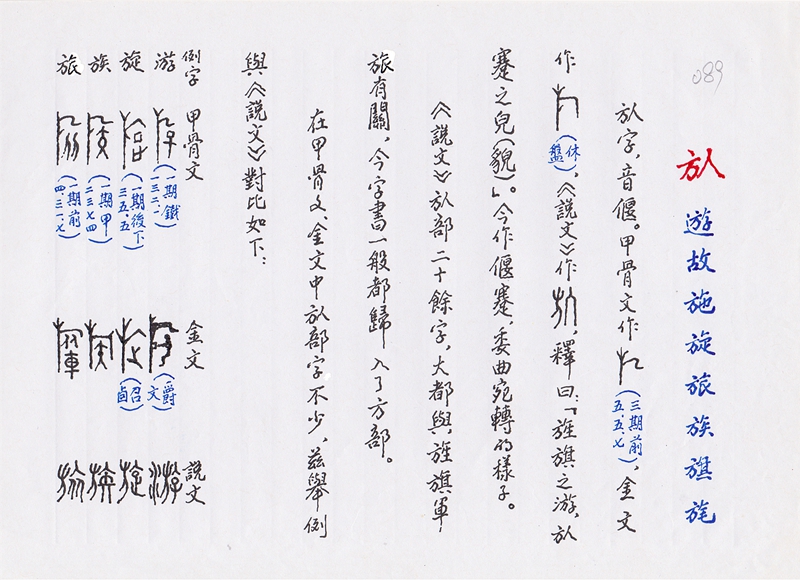 089
㫃 遊 故 施 旋 旅 族 旗 旄
㫃字，音偃。甲骨文作（三期前五、五、七），金文
作（休盤），《說文》作，釋曰：「旌旗之游，㫃
蹇之皃（貌）」。今作偃蹇，委曲宛轉的樣子。
《說文》㫃部二十餘字，大都與旌旗軍，
旅有關，今字書一般都歸入了方部。
在甲骨文、金文中㫃部字不少，茲舉例
與《說文》對比如下：
例字 甲骨文 金文 說文
游 （一期鐵一三二、一） （爵文）
旋 （一期後下三五、五） （召卣）
族 （一期甲二三七四）
旅 （一期前四、三一、七）